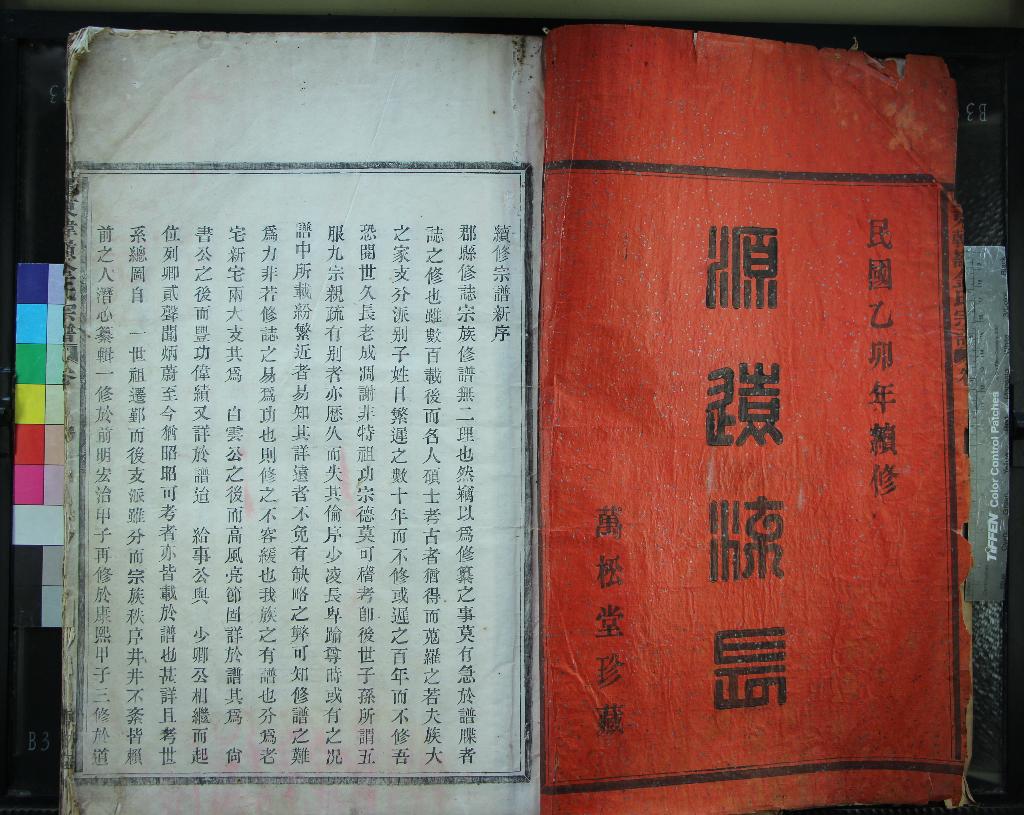 民國乙卯年續修
源遠流長
萬松堂珍藏
續修宗譜新序
郡縣修誌宗族修譜無二理也然竊以爲修纂之事莫有急於譜牒者
誌之修也雖數百載後而名人碩士考古者猶得而蒐羅之若夫族大
之家支分派别子姓日繁遲之數十年而不修或遲之百年而不修吾
恐閱世久長老成凋謝非特祖功宗德莫可稽考卽後世子孫所謂五
服九宗親疏有别者亦歷久而失其倫序少凌長卑踰尊時或有之况
譜中所載紛繁近者易知其詳遠者不免有缺略之弊可知修譜之難
爲力非若修誌之易爲功也則修之不容緩也我族之有譜也分爲老
宅新宅兩大支其爲 白雲公之後而高風亮節固詳於譜其爲 尙
書公之後而豐功偉績又詳於譜迨 給事公與 少卿公相繼而起
位列卿貳聲聞炳蔚至今猶昭昭可考者亦皆載於譜也甚詳且考世
系總圖自 一世祖遷鄞而後支派雖分而宗族秩序井井不紊皆賴
前之人潛心纂輯一修於前明宏治甲子再修於康熙甲子三修於道
B3
B3
B3
TIFFEN Color Control Patches